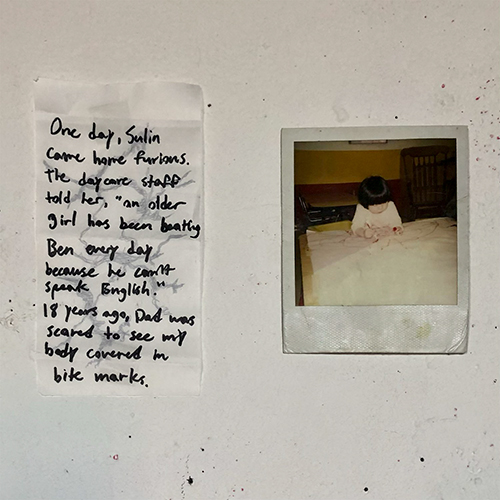 One day, Sulin
came home furious.
The daycare staff
told her, "an older
girl has been beating
Ben every day
because he can't
speak English"
18 years ago, Dad was
scared to see my
body covered in
bite marks.